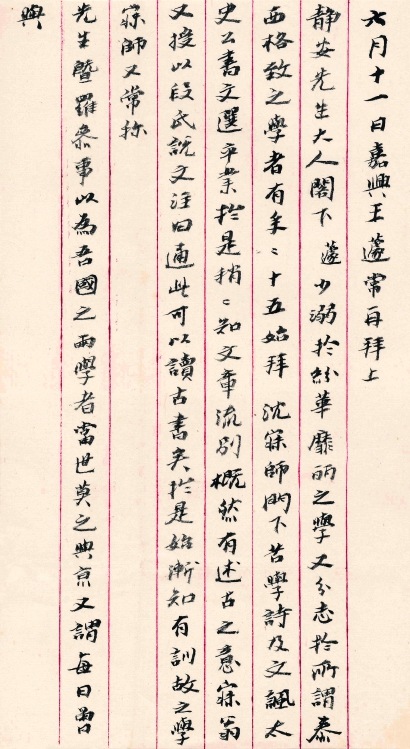 六月十一日嘉興王蘧常再拜上
静安先生大人閣下　蘧少溺於紛華靡丽之學又分志於所謂泰
西格致之學者有年〻十五始拜　沈寐師門下苦學詩及文諷太
史公書文選卒業於是稍〻知文章流别概然有述古之意寐翁
又授以段氏説文注曰通此可以讀古書矣於是始漸知有訓故之學
寐師又常称
先生暨羅叅事以為吾國之两學者當世莫之與京又謂每日曽
與